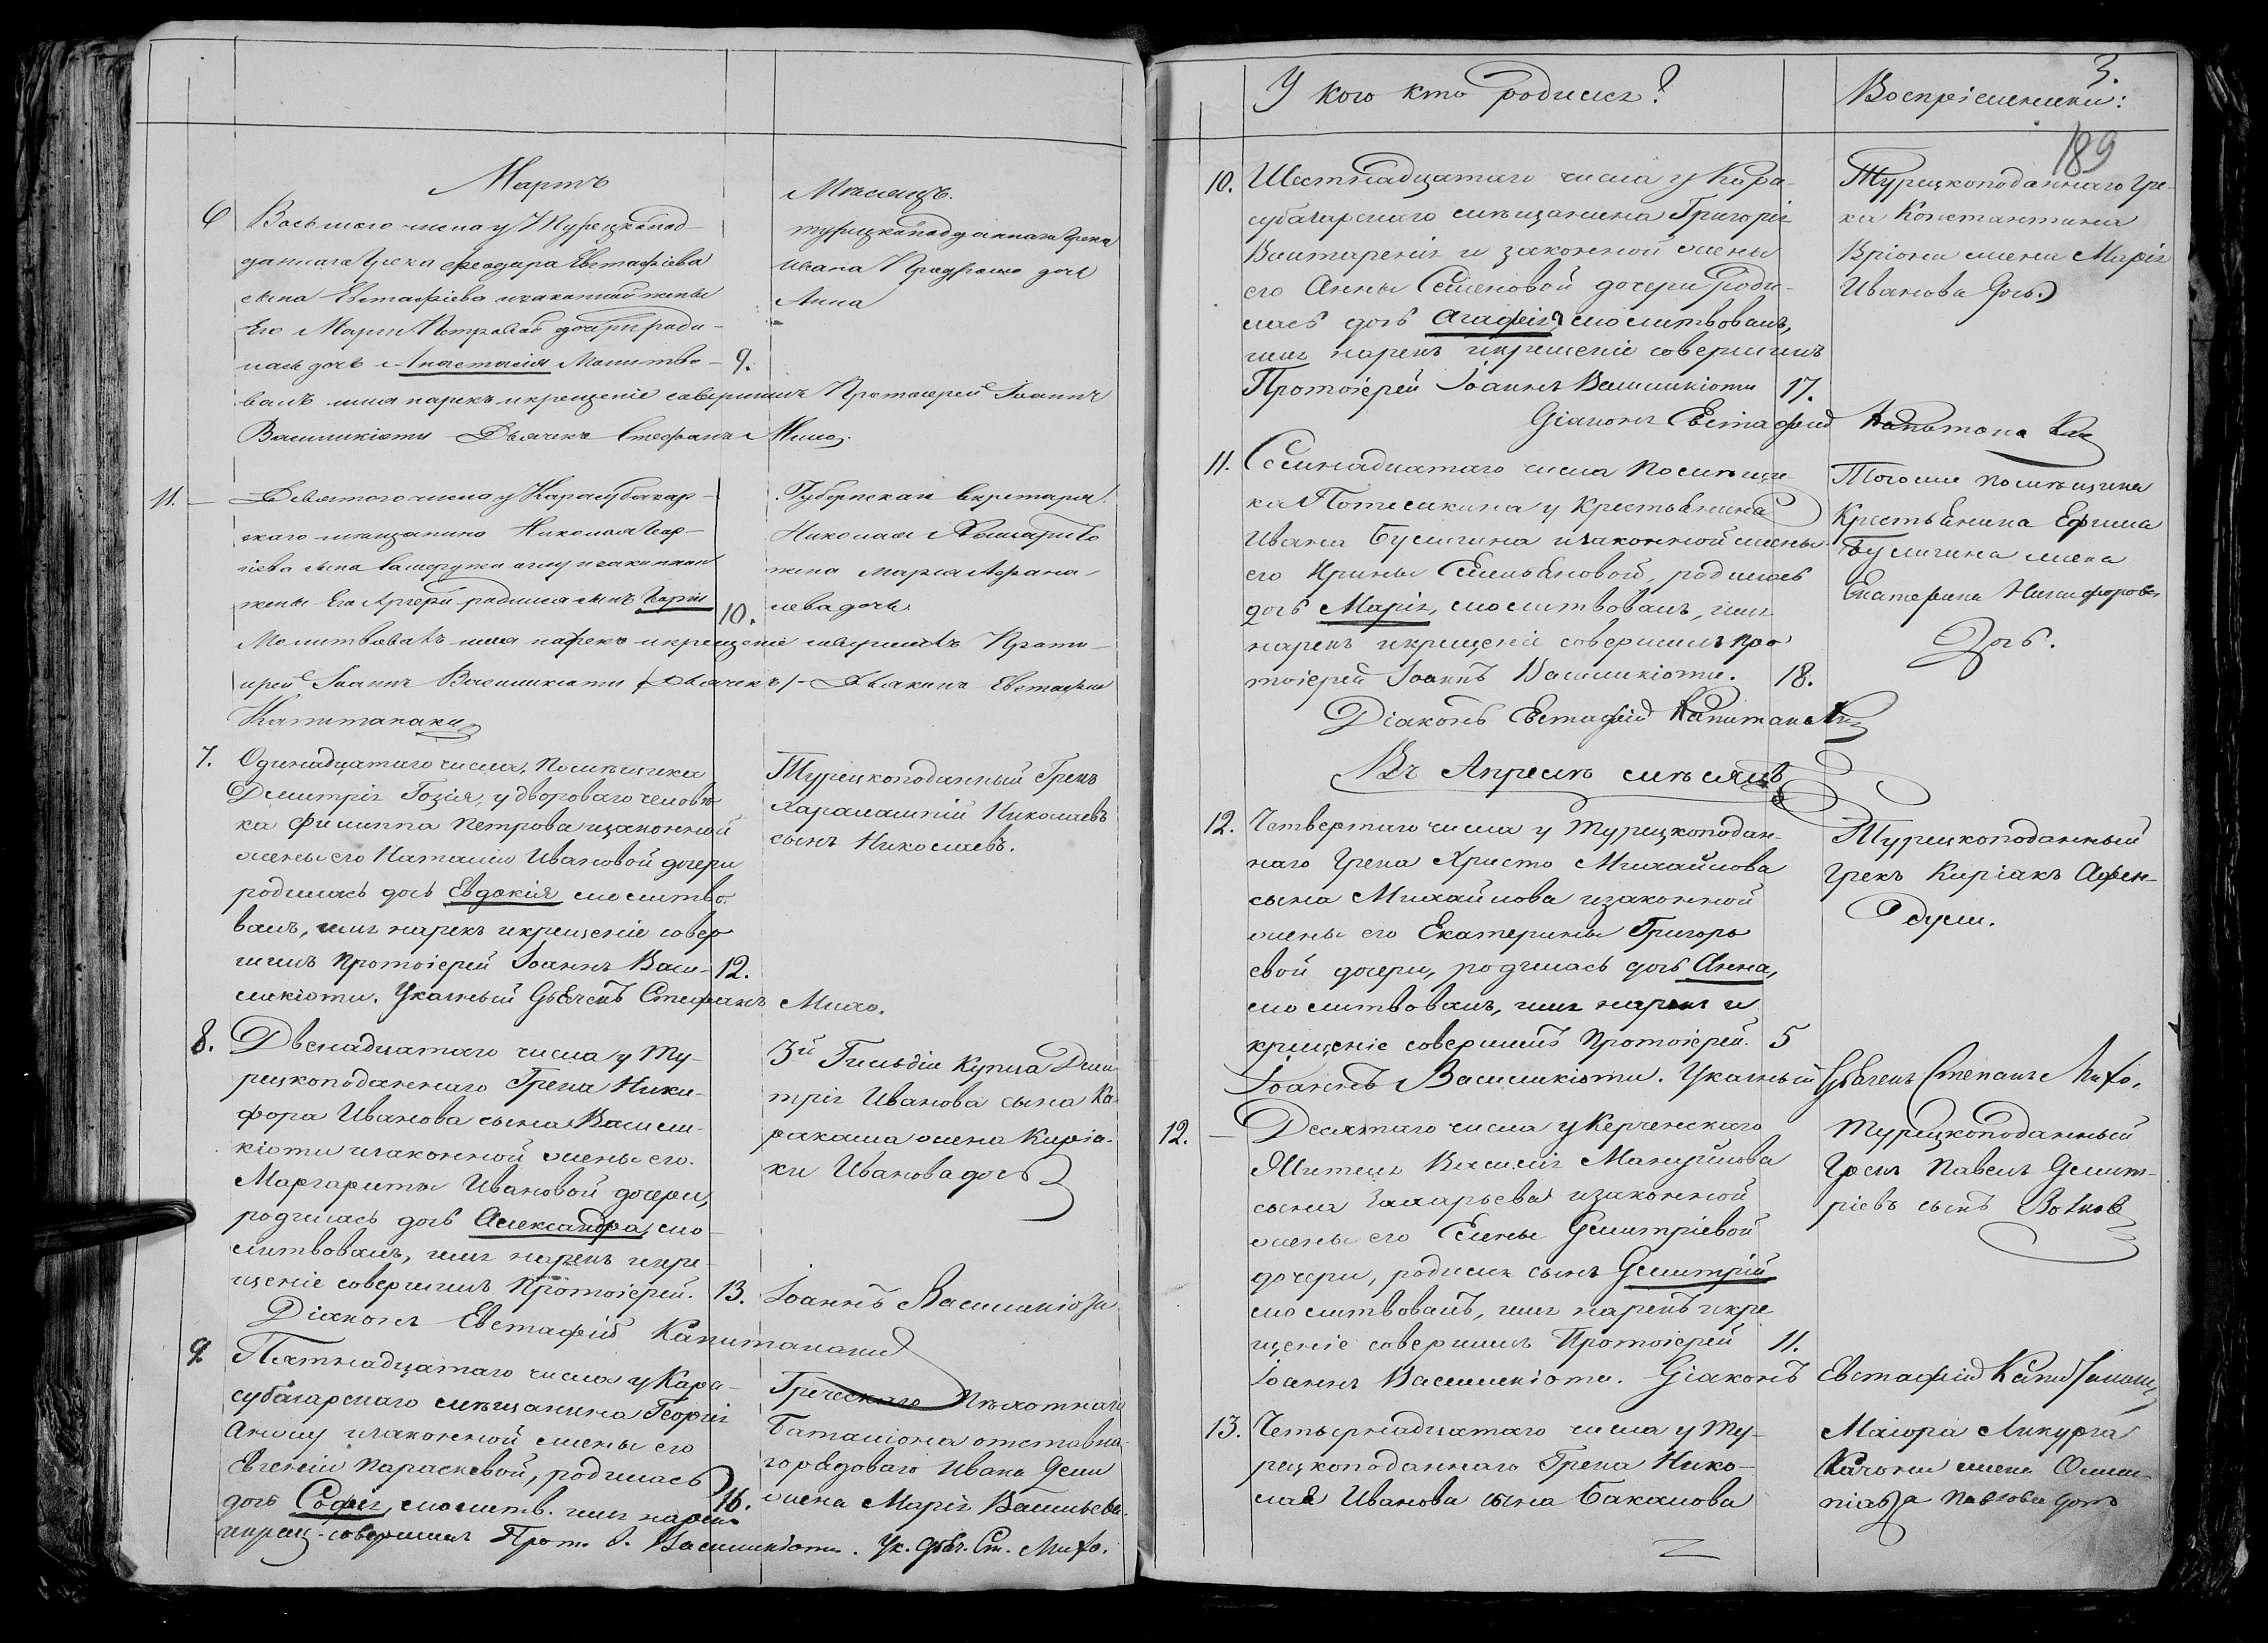 Мартъ
Мѣсяцъ.
6 Восьмого числа у Турецкопод-
даннаго Грека Феодора Евстафіева
сына Евстафіева изаконной жены
Его Маріи Петровой дочери роди-
лась дочь Анастасія Молитво- 9.
валъ имя нарекъ икрещеніе совершилъ Протоіерей Іоаннъ
Василикіоти Дьячекъ Стефанъ Михо.
турецкоподданнаго Грека
Ивана дочь
Анна
11. Девятого числа у Карасубазар-
скаго мещанина Николая
сына изаконной
жены Его родился сынъ 10.
Молитвовалъ имя нарекъ икрещеніе совершилъ Прото-
іерей Іоаннъ Василикіоти (Дьячекъ)- Дьяконъ Евстафій
Капитанаки
Губернскаи Секретаря
Николая
жена Марія Афана-
сьева дочь
7. Одинадцатаго числа, Помѣщика
Дмитрія Гозія, у двороваго человѣ-
ка Филиппа Петрова изаконной
жены его Наталіи Ивановой дочери
родилась дочь Евдокія молитво-
валъ, имя нарекъ икрещеніе совер
шилъ Протоіерей Іоаннъ Васи- 12.
ликіоти. Указный Дьячекъ Стефанъ Михо.
Турецкоподанный Грекъ
Харалампій Николаевъ
сынъ Николаевъ.
8. Двенадцатаго числа у Ту-
рецкоподаннаго Грека Ники-
фора Иванова сына Васили-
кіоти изаконной жены его
Маргариты Ивановой дочери,
родилась дочь Александра, мо-
литвовалъ, имя нарекъ икре-
щеніе совершилъ Протоіерей. 13. Іоаннъ Василикіоти
Діаконъ Евстафій Капитанаки
3й Гильдіи Купца Дми-
трія Иванова сына Ка-
ракаша жена Киріа-
ки Иванова дочь
9. Пятнадцатаго числа у Кара-
субазарскаго мѣщанина Георгія
изаконной жены его
Евгеніи Параскевой, родилась
дочь Софія, молитв. имя нарекъ 16.
икрещ. совершилъ Прот. І. Василикіоти. Ук. дьяч. Ст. Михо.
Греческаго Пѣхотнаго
Баталіона отставна-
го рядоваго Ивана
жена Марія Васильева
3.
У кого кто родился?
Воспріемники:
189
10. Шестнадцатаго числа у Кара-
субазарскаго мѣщанина Григорія
и законной жены
его Анны Семеновой дочери роди-
лась дочь Агафія, молитвовалъ,
имя нарекъ икрещеніе совершилъ
Протоіерей Іоаннъ Василикіоти 17.
Діаконъ Евстафій Капитанаки
Турецкоподаннаго Гре-
ка Константина
Вріони жена Марія
Иванова дочь.
11. Семнадцатаго числа Помѣщи-
ка Потемкина у Крестьянина
Ивана Булыгина изаконной жены
его Ирины Емельяновой, родилась
дочь Марія, молитвовалъ, имя
нарекъ икрещеніе совершилъ Про
тоіерей Іоаннъ Василикіоти. 18.
Діаконъ Евстафій Капитанаки
Того же помѣщика
Крестьянина Ефима
Булыгина жена
Екатерина Никифорова
Дочь.
Въ Апрелѣ мѣсяцѣ
12. Четвертаго числа у Турецкоподан-
наго Грека Христо Михайлова
сына Михайлова изаконной
жены его Екатерины Григорь
евой дочери, родилась дочь Анна,
молитвовалъ, имя нарекъ и
крещеніе совершилъ Протоіерей. 5
Іоаннъ Василикіоти. Указный Дьячекъ Степанъ Михо.
Турецкоподанный
Грекъ Киріакъ Афен-
дули.
12. Десятаго числа у Керченскаго
Жителя Василія Мануйлова
сына Захарьева изаконной
жены его Елены Дмитріевой
дочери, родился сынъ Димитрій
молитвовалъ, имя нарекъ икре
щеніе совершилъ Протоіерей 11.
Іоаннъ Василикіоти. Діаконъ Евстафій Капитанаки
Турецкоподанный
Грекъ Павелъ Димит-
ріевъ сынъ
13. Четырнадцатаго числа у Ту-
рецкоподаннаго Грека Нико-
лая Иванова сына Бакалова
Маіора Ликурга
Качони жена Олим-
піада Павлова дочь